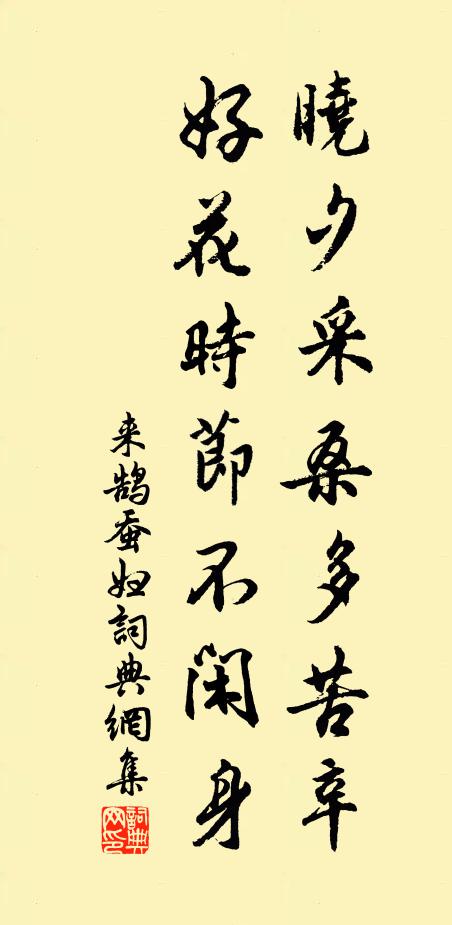 曉夕采桑多苦辛
好花時節不閑身
来鵠蚕妇詞典網集
詞典网印